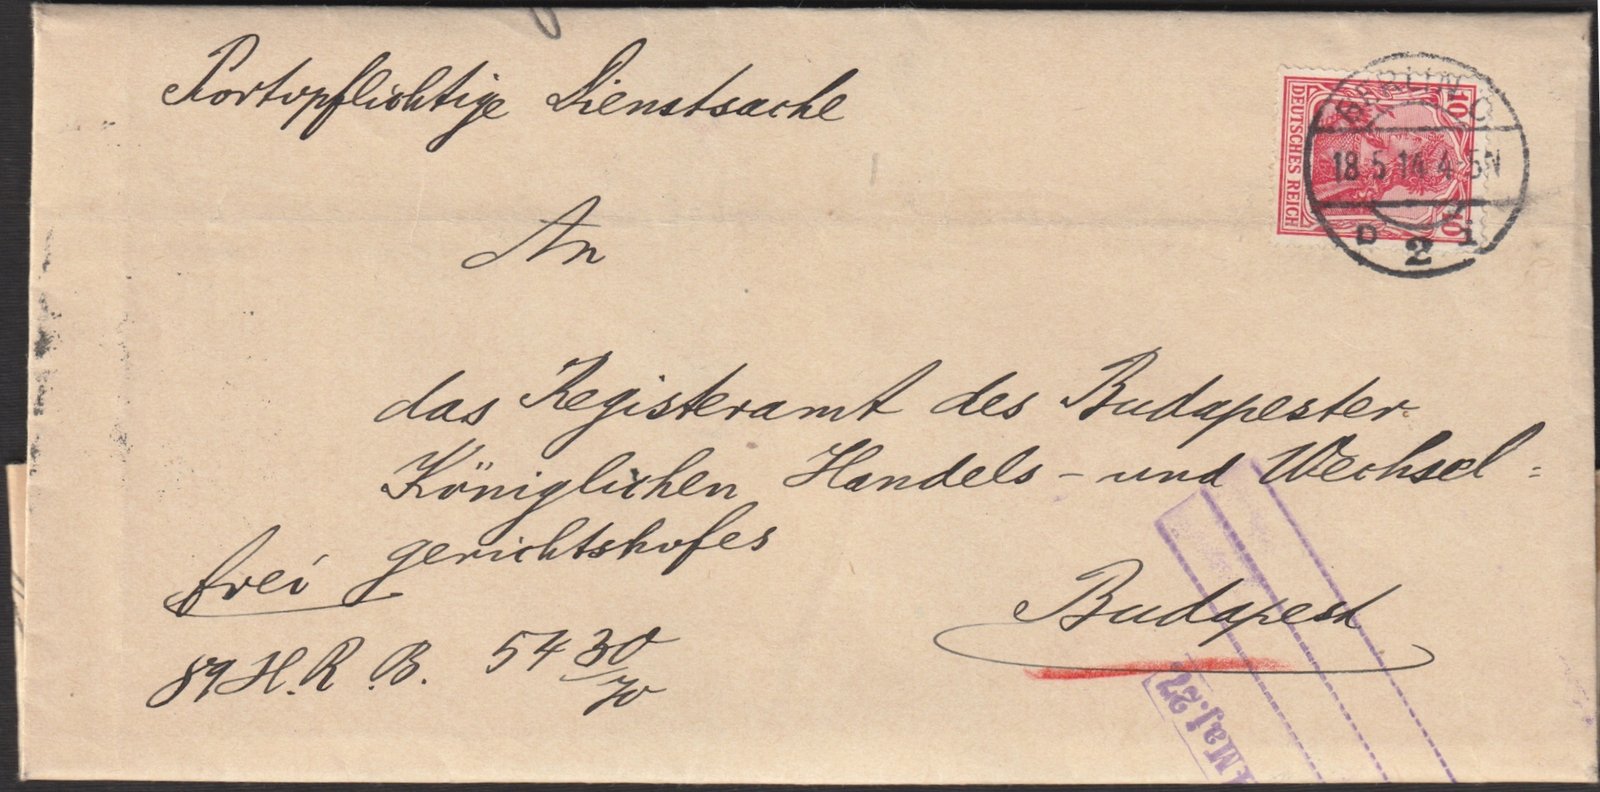 Portopflichtige Dienstsache
10 DEUTSCHES REICH 10
BERLIN C
18.5.14.4-5N
D 2 i
An
das Registeramt des Budapester
Königlichen Handels- und Wechsel=
gerichtshofes
frei
Budapest
89 H.R.B. 5430
Maj. 27